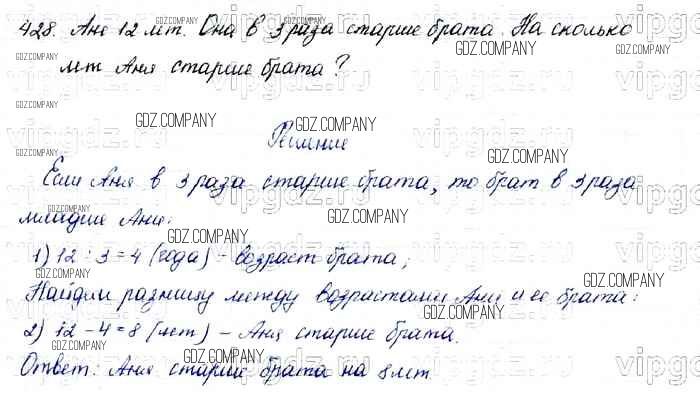 428. Ане 12 лет. Она в 3 раза старше брата. На сколько
лет Аня старше брата?
Решение
Если Аня в 3 раза старше брата, то брат в 3 раза
младше Ани:
1) 12 : 3 = 4 (года) – возраст брата;
Найдем разницу между возрастами Ани и ее брата:
2) 12 – 4 = 8 (лет) – Аня старше брата.
Ответ: Аня старше брата на 8 лет.
GDZ.COMPANY
vipgdz.ru